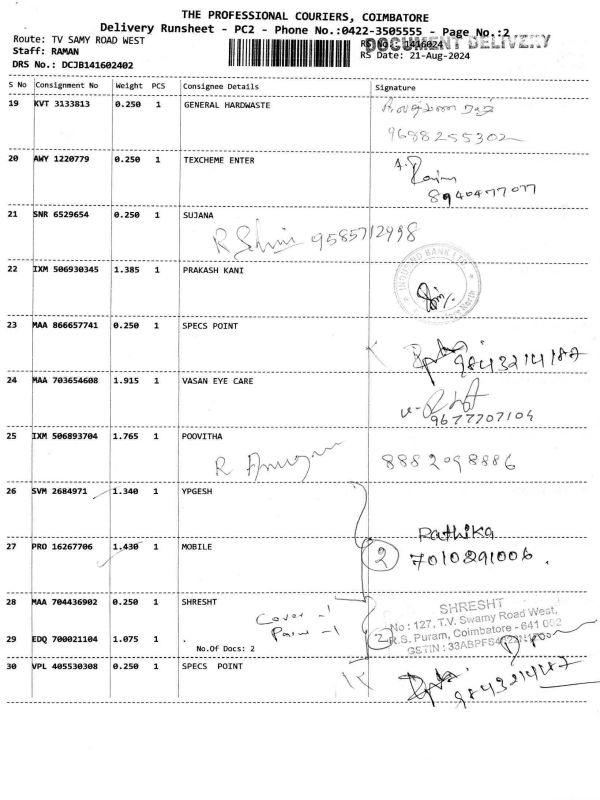 THE PROFESSIONAL COURIERS, COIMBATORE
Delivery Runsheet - PC2 - Phone No.:0422-3505555 - Page No.:2
Route: TV SAMY ROAD WEST
DOCUMENT DELIVERY
Staff: RAMAN
RS No.: 1416024
DRS No.: DCJB141602402
RS Date: 21-Aug-2024
S No Consignment No Weight PCS Consignee Details Signature
19 KVT 3133813 0.250 1 GENERAL HARDWASTE
9688255302
20 AWY 1220779 0.250 1 TEXCHEME ENTER
A.
8940477077
21 SNR 6529654 0.250 1 SUJANA
R 9585712998
22 IXM 506930345 1.385 1 PRAKASH KANI
INDUSIND BANK LTD
23 MAA 866657741 0.250 1 SPECS POINT
9843214187
24 MAA 703654608 1.915 1 VASAN EYE CARE
9677707104
25 IXM 506893704 1.765 1 POOVITHA
R 8882098886
26 SVM 2684971 1.340 1 YPGESH
Rathika
27 PRO 16267706 1.430 1 MOBILE
2 7010291006.
28 MAA 704436902 0.250 1 SHRESHT
Cover -1
SHRESHT
No : 127, T.V. Swamy Road West,
2 R.S. Puram, Coimbatore - 641 002
GSTIN : 33ABPFS4
29 EDQ 700021104 1.075 1 .
No.Of Docs: 2
30 VPL 405530308 0.250 1 SPECS POINT
9843214187